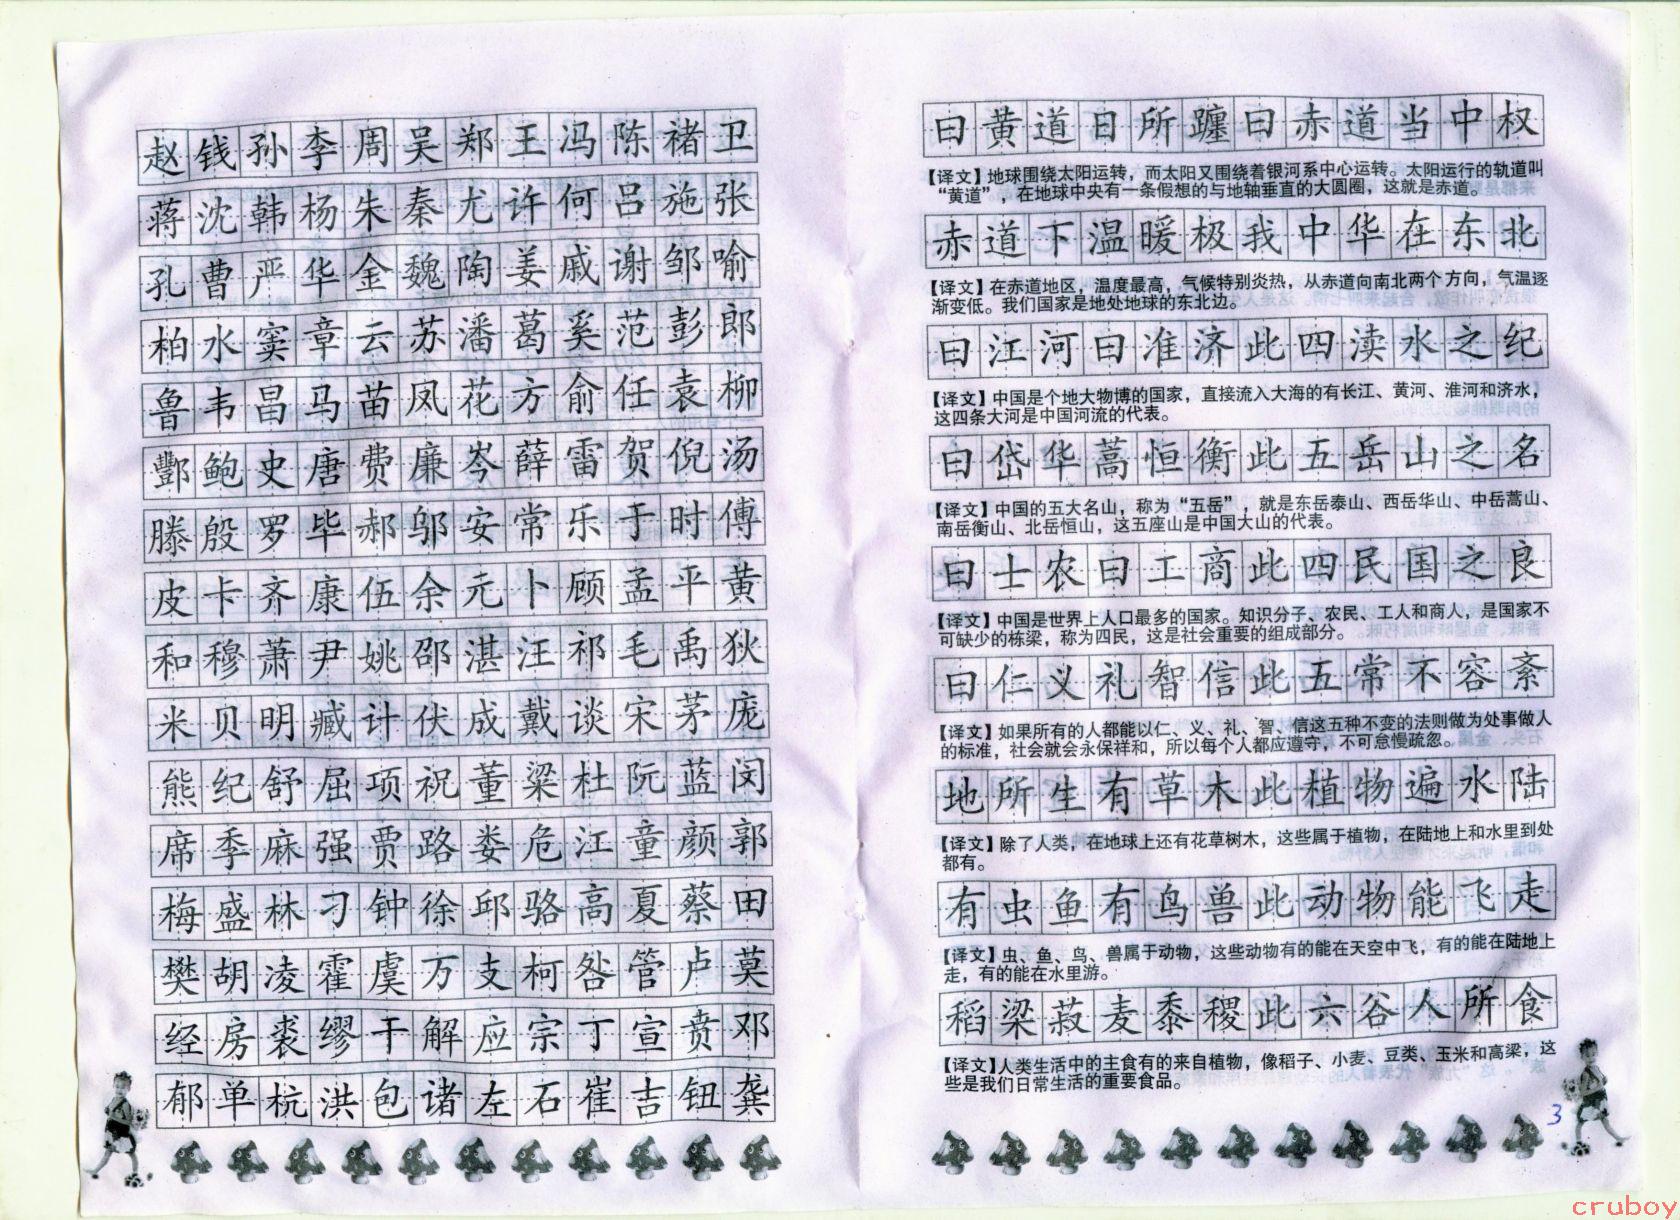 赵钱孙李周吴郑王冯陈褚卫
蒋沈韩杨朱秦尤许何吕施张
孔曹严华金魏陶姜戚谢邹喻
柏水窦章云苏潘葛奚范彭郎
鲁韦昌马苗凤花方俞任袁柳
酆鲍史唐费廉岑薛雷贺倪汤
滕殷罗毕郝邬安常乐于时傅
皮卡齐康伍余元卜顾孟平黄
和穆萧尹姚邵湛汪祁毛禹狄
米贝明臧计伏成戴谈宋茅庞
熊纪舒屈项祝董粱杜阮蓝闵
席季麻强贾路娄危江童颜郭
梅盛林刁钟徐邱骆高夏蔡田
樊胡凌霍虞万支柯昝管卢莫
经房裘缪干解应宗丁宣贲邓
郁单杭洪包诸左石崔吉钮龚
曰黄道日所躔曰赤道当中权
【译文】地球围绕太阳运转，而太阳又围绕着银河系中心运转。太阳运行的轨道叫
“黄道”，在地球中央有一条假想的与地轴垂直的大圆圈，这就是赤道。
赤道下温暖极我中华在东北
【译文】在赤道地区，温度最高，气候特别炎热，从赤道向南北两个方向，气温逐
渐变低。我们国家是地处地球的东北边。
曰江河曰准济此四渎水之纪
【译文】中国是个地大物博的国家，直接流入大海的有长江、黄河、淮河和济水，
这四条大河是中国河流的代表。
曰岱华蒿恒衡此五岳山之名
【译文】中国的五大名山，称为“五岳”，就是东岳泰山、西岳华山、中岳蒿山、
南岳衡山、北岳恒山，这五座山是中国大山的代表。
曰士农曰工商此四民国之良
【译文】中国是世界上人口最多的国家。知识分子、农民、工人和商人，是国家不
可缺少的栋梁，称为四民，这是社会重要的组成部分。
曰仁义礼智信此五常不容紊
【译文】如果所有的人都能以仁、义、礼、智、信这五种不变的法则做为处事做人
的标准，社会就会永保祥和，所以每个人都应遵守，不可怠慢疏忽。
地所生有草木此植物遍水陆
【译文】除了人类，在地球上还有花草树木，这些属于植物，在陆地上和水里到处
都有。
有虫鱼有鸟兽此动物能飞走
【译文】虫、鱼、鸟、兽属于动物，这些动物有的能在天空中飞，有的能在陆地上
走，有的能在水里游。
稻梁菽麦黍稷此六谷人所食
【译文】人类生活中的主食有的来自植物，像稻子、小麦、豆类、玉米和高梁，这
些是我们日常生活的重要食品。
3
cruboy